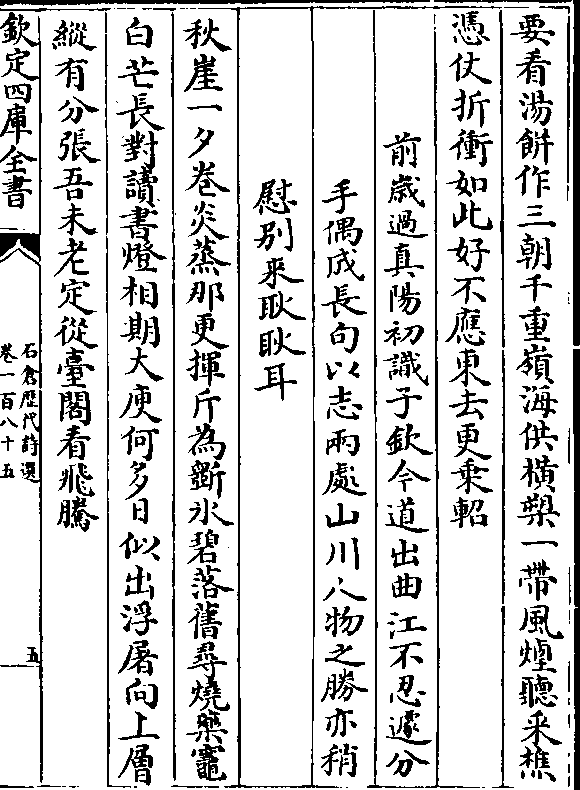 要看湯餅作三朝千重嶺海供橫槊一帶風煙聽采樵
憑仗折衝如此好不應東去更乘軺
前歲過真陽初識子欽今道出曲江不忍遽分
手偶成長句以志兩處山川人物之勝亦稍
慰別來耿耿耳
秋崖一夕卷炎蒸那更揮斤為斲氷碧落舊尋燒藥竈
白芒長對讀書燈相期大庾何多日似出浮屠向上層
縱有分張吾未老定從臺閣看飛騰
欽定四庫全書
石倉歷代詩選
卷一百八十五
五